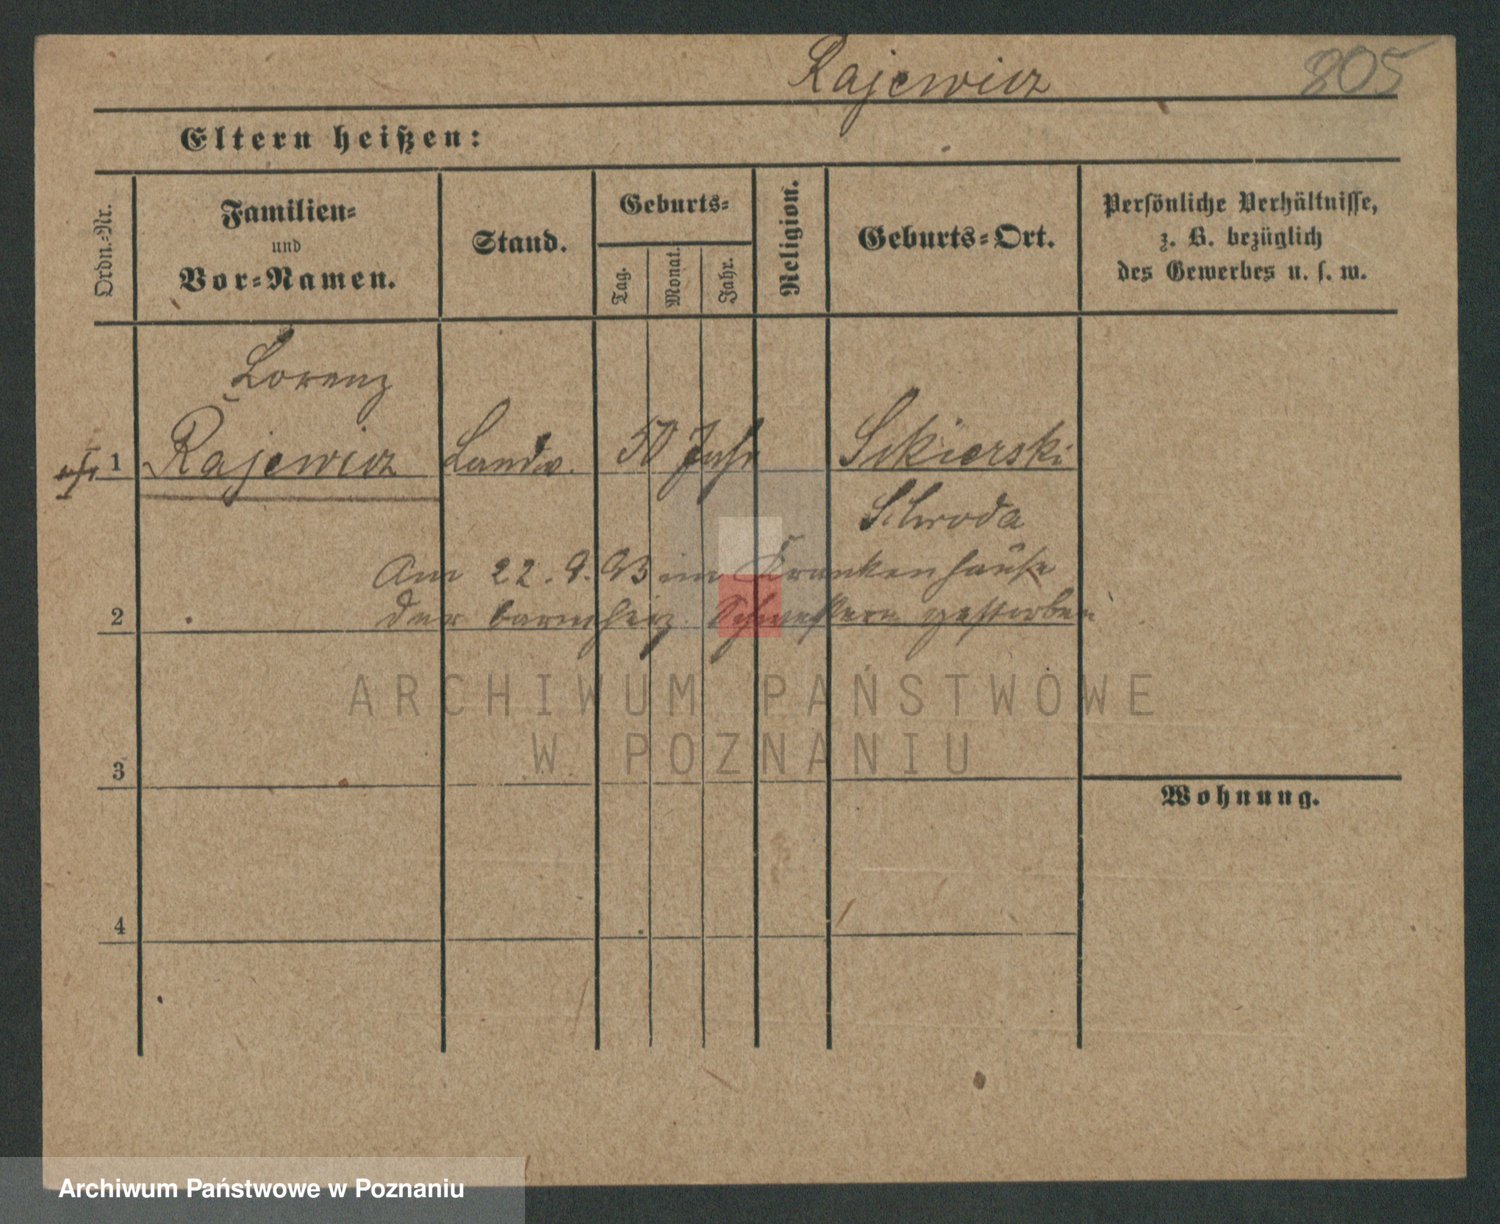 Rajewicz 805
Eltern heißen:
Ordn.=Nr.
Familien=
und
Vor=Namen.
Stand.
Geburts=
Tag.
Monat.
Jahr.
Religion.
Geburts=Ort.
Persönliche Verhältnisse,
z. B. bezüglich
des Gewerbes u. s. w.
Lorenz
1 Rajewicz Landw. 50 Jahr Sikierski
Schroda
Am 22.9.93 im Krankenhause
2 der barmherz. Schwestern gestorben
ARCHIWUM PAŃSTWOWE
W POZNANIU
3
Wohnung.
4
Archiwum Państwowe w Poznaniu